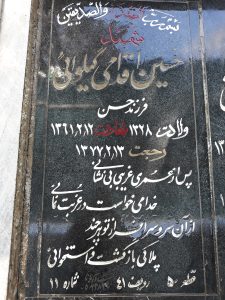 والصدیقین
شهید
حسین اقدامی گیلوائی
فرزند حسن
ولادت ۱۳۴۸ ۱۳۶۱,۲,۱۲
رجعت ۱۳۷۷,۲,۱۳
پس از عمری غریبی بی نشانی
خدای خواست در غربت نمانی
از آن سرو سرافراز تو هر چند
پلاکی بازگشت و استخوانی
قطعه ۵۰ ردیف ۴۱ شماره ۱۱